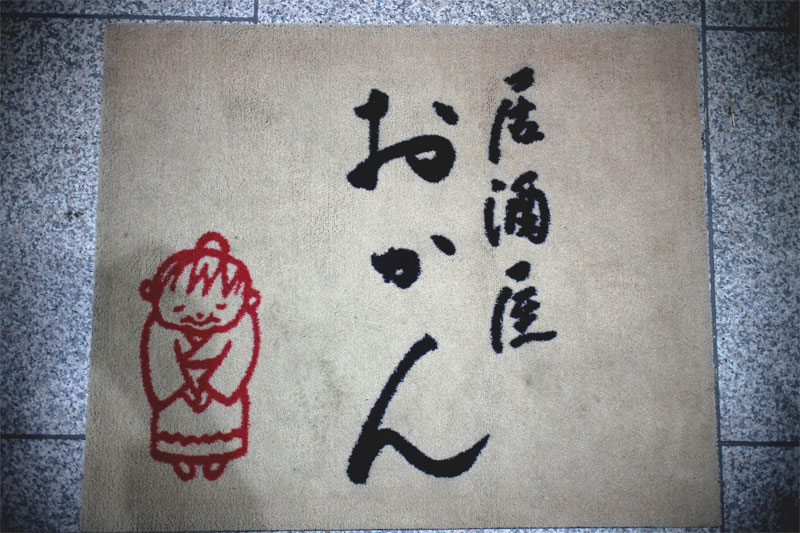 居酒屋
おかん